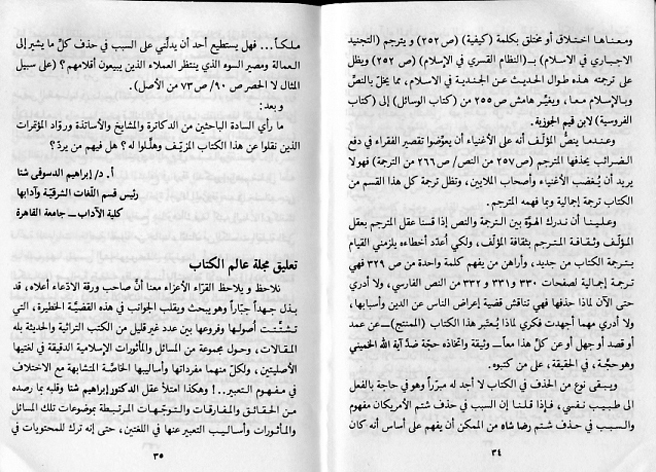 ومعناها اختلاق أو مختلق بكلمة (كيفية) (ص ٢٥٢) و يترجم (التجنيد
الاجباري في الاسلام) بـ(النظام القسري في الإسلام) (ص ٢٥٢) ويظل
على ترجمته هذه طوال الحديث عن الجندية في الاسلام، مما يخلّ بالنصّ
وبالإسلام معا، ويغيّر هامش ص ٢٥٥ من (كتاب الوسائل) إلى (كتاب
الفروسية) لابن قيم الجوزية.
وعندما ينصُّ المؤلّف أنه على الأغنياء أن يعوّضوا تقصير الفقراء في دفع
الضرائب يحذفها المترجم (ص ٢٥٧ من النص/ ص ٢٦٦ من الترجمة) فهولا
يريد أن يُغضب الأغنياء وأصحاب الملايين، وتظل ترجمة كل هذا القسم من
الكتاب ترجمة إجمالية وبما فهمه المترجم.
وعلينا أن ندرك الهوّة بين الترجمة والنص إذا قسنا عقل المترجم بعقل
المؤلّف وثقافة المترجم بثقافة المؤلف، ولكي أعدّد أخطاءه يلزمني القيام
بترجمة الكتاب من جديد، وأراهن من يفهم كلمة واحدة من ص ٣٢٩ فهي
ترجمة إجمالية لصفحات ٣٣٠ و ٣٣١ و ٣٣٢ من النص الفارسي، ولا أدري
حتى الآن لماذا حذفها فهي تناقش قضية إعراض الناس عن الدين وأسبابها،
ولا أدري مهما أجهدت فكري لماذا يُعتبر هذا الكتاب (الممنتج) ــ عن عمد
أو قصد أو جهل أو عن كلّ هذا معاً ــ وثيقة واتخاذه حجّة ضدّ آية الله الخميني
وهو حجّة، في الحقيقة، على من كتبوه.
ويبقى نوع من الحذف في الكتاب لا أجد له مبرّراً وهو في حاجة بالفعل
الى طبيب نفسي، فإذا قلنا إن السبب في حذف شتم الأمريكان مفهوم
والسبب في حذف شتم رضا شاه من الممكن أن يفهم على أساس أنه كان
٣٤
ملكاً... فهل يستطيع أحد أن يدلّني على السبب في حذف كلّ ما يشير إلى
العمالة ومصير السوء الذي ينتظر العملاء الذين يبيعون أقلامهم؟ (على سبيل
المثال لا الحصر ص ٩٠/ ص ٧٣ من الأصل).
و بعد:
ما رأي السادة الباحثين من الدكاترة والمشايخ والأساتذة وروّاد المؤتمرات
الذين نقلوا عن هذا الكتاب المزيّف وهلّلوا له؟ هل فيهم من يردّ؟
أ. د/ إبراهيم الدسوقي شتا
رئيس قسم اللّغات الشرقيّة وآدابها
كلية الآداب ــ جامعة القاهرة
تعليق مجلة عالم الكتاب
نلاحظ و يلاحظ القرّاء الأعزاء معنا أنّ صاحب ورقة الادّعاء أعلاه، قد
بذل جهداً جبّاراً وهو يبحث ويقلب الجوانب في هذه القضيّة الخطيرة، التي
تشتّتت أصولها وفروعها بين عدد غير قليل من الكتب التراثية والحديثة بله
المقالات، وحول مجموعة من المسائل والمأثورات الإسلامية الدقيقة في لغتيها
الأصليتين، ولكلّ منهما مفرداتها وأساليبها الخاصّة المتشابهة مع الاختلاف
في مفهوم التعبير..! وهكذا امتلأ عقل الدكتور إبراهيم شتا وقلبه بما رصده
من الحقائق والمفارقات والتوجّهات المرتبطة بموضوعات تلك المسائل
والمأثورات وأساليب التعبير عنها في اللغتين، حتى إنه ترك للمحتويات في
٣٥